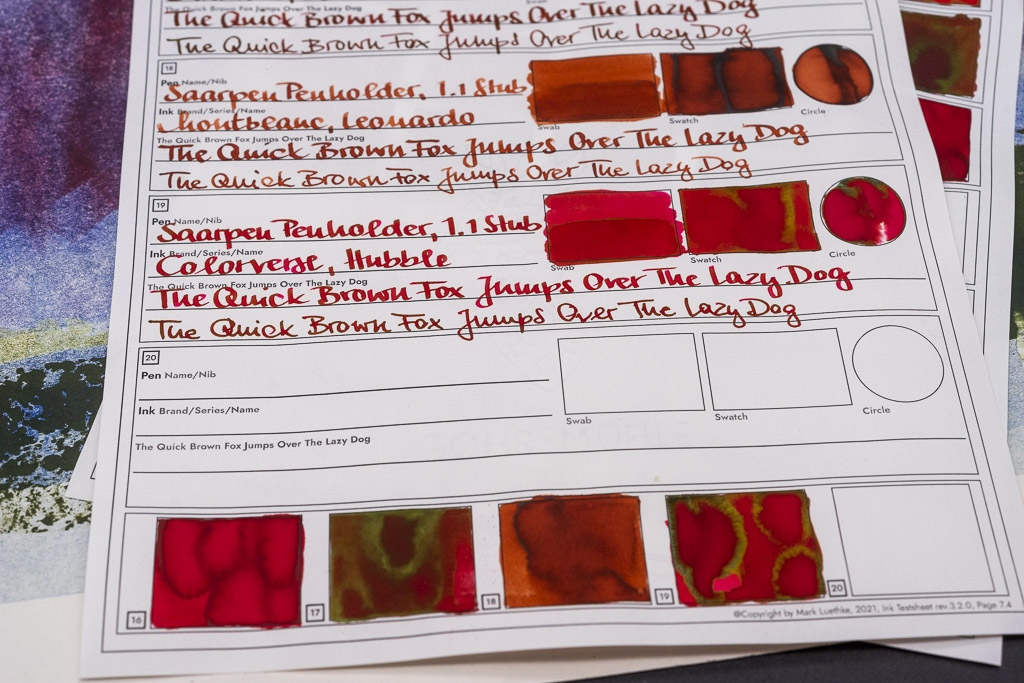 The Quick Brown Fox Jumps Over The Lazy Dog
Swab
Swatch
Circle
The Quick Brown Fox Jumps Over The Lazy Dog
The Quick Brown Fox Jumps Over The Lazy Dog
18
Pen Name/Nib
Saarpen Penholder, 1.1 Stub
Ink Brand/Series/Name
Montblanc, Leonardo
Swab
Swatch
Circle
The Quick Brown Fox Jumps Over The Lazy Dog
The Quick Brown Fox Jumps Over The Lazy Dog
The Quick Brown Fox Jumps Over The Lazy Dog
19
Pen Name/Nib
Saarpen Penholder, 1.1 Stub
Ink Brand/Series/Name
Colorverse, Hubble
Swab
Swatch
Circle
The Quick Brown Fox Jumps Over The Lazy Dog
The Quick Brown Fox Jumps Over The Lazy Dog
The Quick Brown Fox Jumps Over The Lazy Dog
20
Pen Name/Nib
Ink Brand/Series/Name
Swab
Swatch
Circle
The Quick Brown Fox Jumps Over The Lazy Dog
16
17
18
19
20
©Copyright by Mark Luethke, 2021, Ink Testsheet rev.3.2.0, Page 7.4